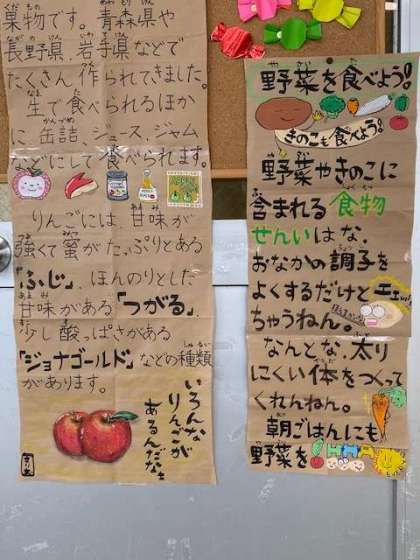 果物です。青森県や
長野県、岩手県などで
たくさん作られてきました。
生で食べられるほか
に、缶詰、ジュース、ジャム
などにして食べられます。
りんごには、甘味が
強くて蜜がたっぷりとある
「ふじ」、ほんのりとした
甘味がある「つがる」、
少し酸っぱさがある
「ジョナゴールド」などの種類
があります。
いろんな
りんごが
あるんだなぁ
野菜を食べよう!
きのこも食べよう!
野菜やきのこに
含まれる食物
せんいはな、
おなかの調子を
よくするだけと
ちゃうねん。
なんとな、太り
にくい体をつくって
くれんねん。
朝ごはんにも
野菜を